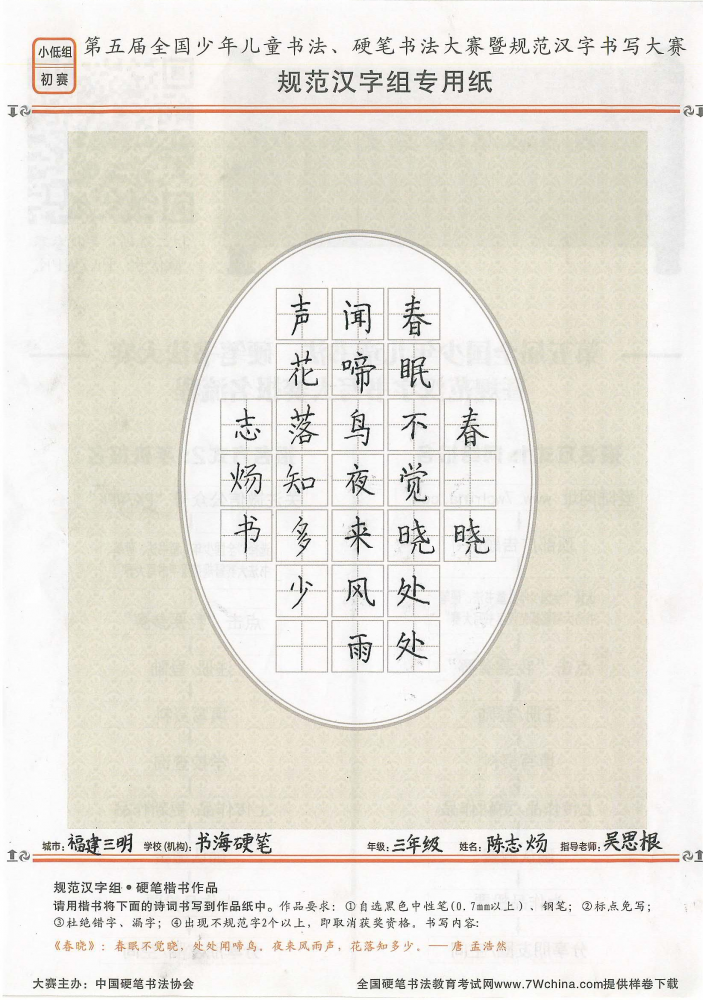 小低组
初赛
第五届全国少年儿童书法、硬笔书法大赛暨规范汉字书写大赛
规范汉字组专用纸
春晓
春眠不觉晓处处
闻啼鸟夜来风雨
声花落知多少
志炀书
城市：福建三明 学校(机构)：书海硬笔 年级：三年级 姓名：陈志炀 指导老师：吴思根
规范汉字组•硬笔楷书作品
请用楷书将下面的诗词书写到作品纸中。作品要求：①自选黑色中性笔(0.7mm以上)、钢笔；②标点免写；
③杜绝错字、漏字；④出现不规范字2个以上，即取消获奖资格。书写内容：
《春晓》：春眠不觉晓，处处闻啼鸟。夜来风雨声，花落知多少。——唐 孟浩然
大赛主办：中国硬笔书法协会 全国硬笔书法教育考试网www.7Wchina.com提供样卷下载